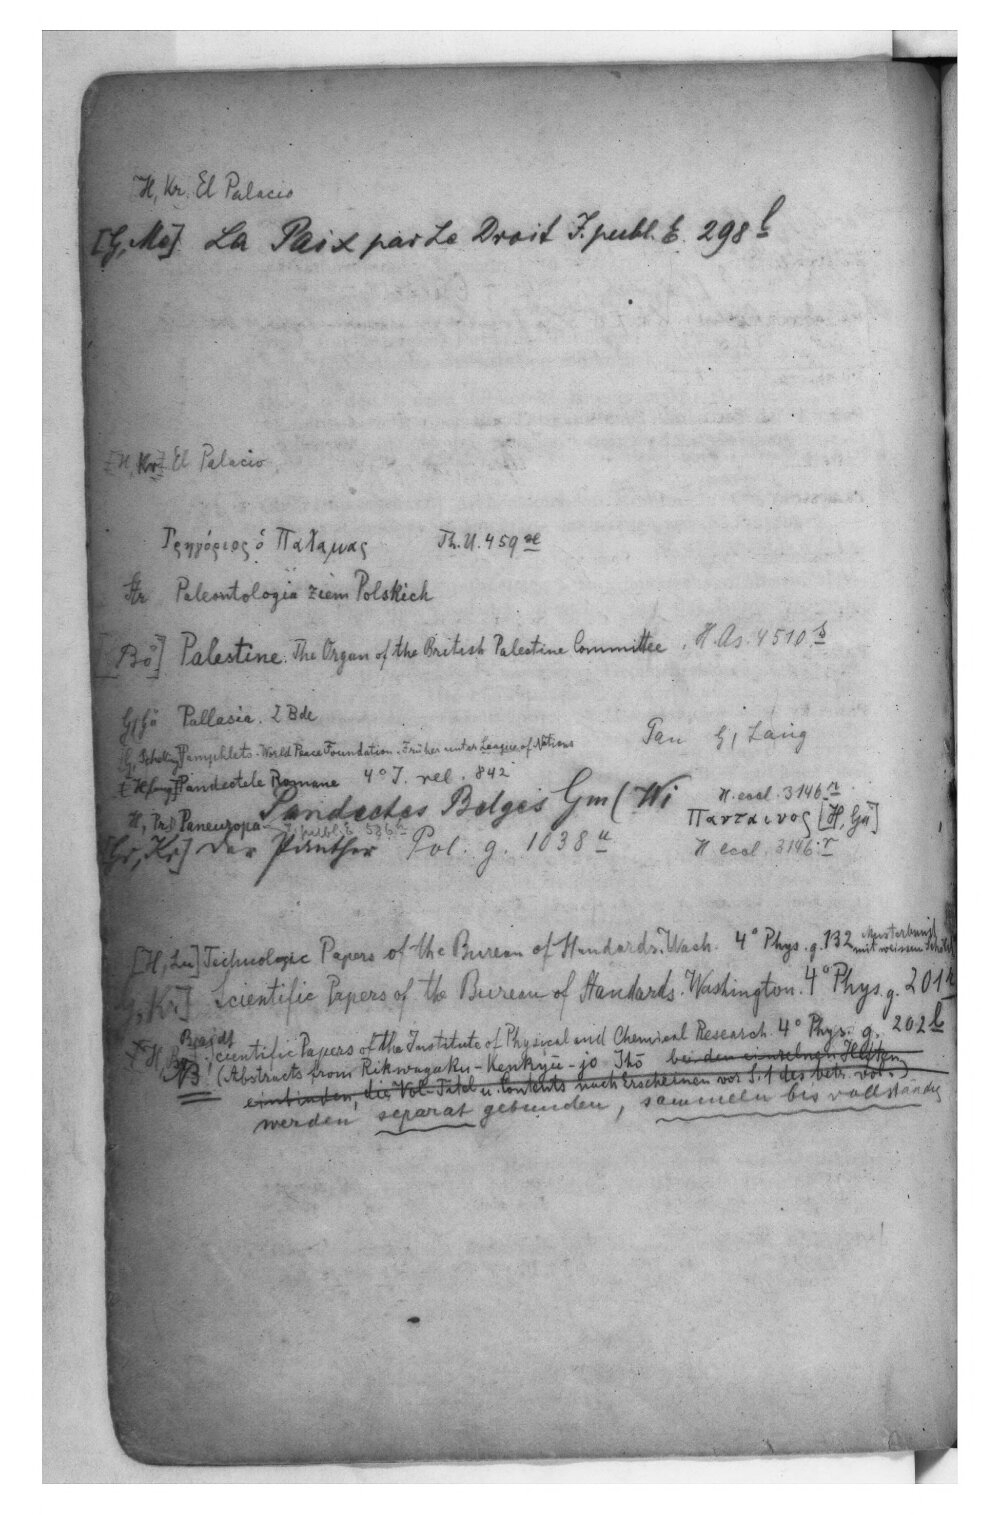 H, Kr. El Palacio
[G, Me] La Paix par Le Droit J. publ. E. 298 l
[H, Kr] El Palacio
Γρηγόριος ὁ Παλαμας Th. U. 459 æ
Str Paleontologia ziem Polskich
[Bö] Palestine. The Organ of the British Palestine Committee. H. As. 4510 s
G, Gö Pallasia. 2 Bde
Pan G, Lang
[G, Schilling] Pamphlets. World Peace Foundation. Früher unter League of Nations
[H, Lang] Pandectele Romane 4° J. rel. 842
Pandectes Belges Gm (Wi
H. eccl. 3146 r
H, Pr. Paneuropa J. publ. E 536
Πανταινος [H, Gü]
[Gr, Kr] Der Panther Pol. g. 1038 u
H eccl. 3146 r
[H, Lu] Technologic Papers of the Bureau of Standards. Wash. 4° Phys. g. 132 Musterband mit weissem Schild
G, Kr] Scientific Papers of the Bureau of Standards. Washington. 4° Phys. g. 201
[H, Brajdt Scientific Papers of the Institute of Physical and Chemical Research. 4° Phys. g. 202 l
NB (Abstracts from Rikwagaku-Kenkyū-jo Ihō bei den einzelnen Heften
einbinden, die Vol-Titel u. Contents nach Erscheinen vor S. 1 des betr. Vol.)
werden separat gebunden, sammeln bis vollständig